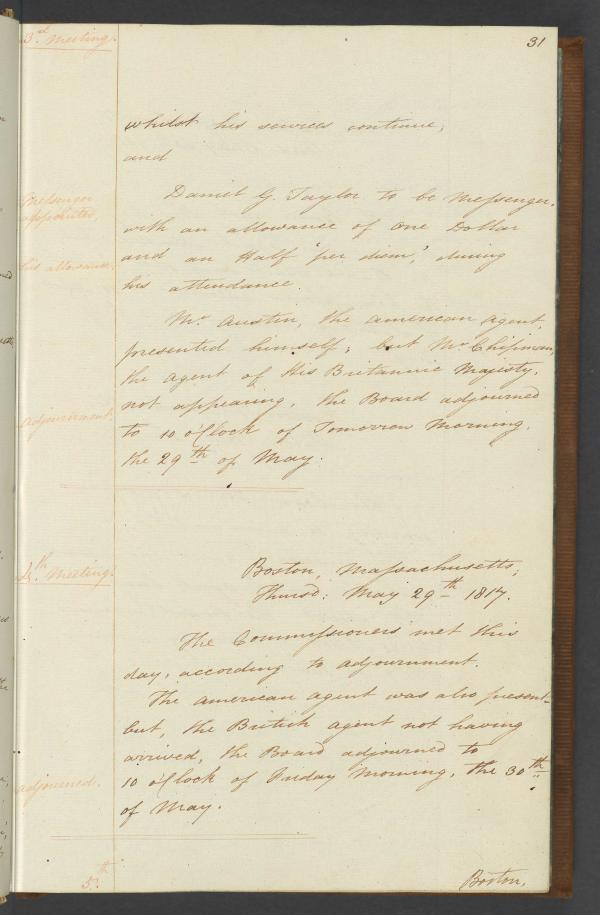 3.d Meeting.
31
whilst his services continue,
and
Messenger
appointed,
Daniel G. Taylor to be Messenger,
with an allowance of One Dollar
his allowance.
and an Half 'per diem,' during
his attendance.
Mr. Austin, the American Agent,
presented himself; but Mr. Chipman,
the Agent of His Britannic Majesty,
not appearing, the Board adjourned
adjournment.
to 10 o'Clock of Tomorrow Morning,
the 29th of May.
4.th Meeting.
Boston, Massachusetts;
Thursd: May 29th 1817.
The Commissioners met this
day, according to adjournment.
The American Agent was also present-
but, the British Agent not having
arrived, the Board adjourned to
adjourned.
10 o'Clock of Friday Morning, the 30th
of May.
5.th
Boston,